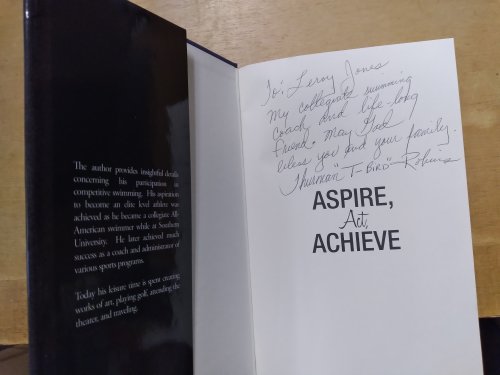 The author provides insightful details
concerning his participation in
competitive swimming. His aspiration
to become an elite level athlete was
achieved as he became a collegiate All-
American swimmer while at Southern
University. He later achieved much
success as a coach and administrator of
various sports programs.
Today his leisure time is spent creating
works of art, playing golf, attending the
theater, and traveling.
To: Leroy Jones
My collegiate swimming
coach and life-long
friend. May God
bless you and your family.
Thurman "T-BIRD" Robins
ASPIRE,
Act,
ACHIEVE